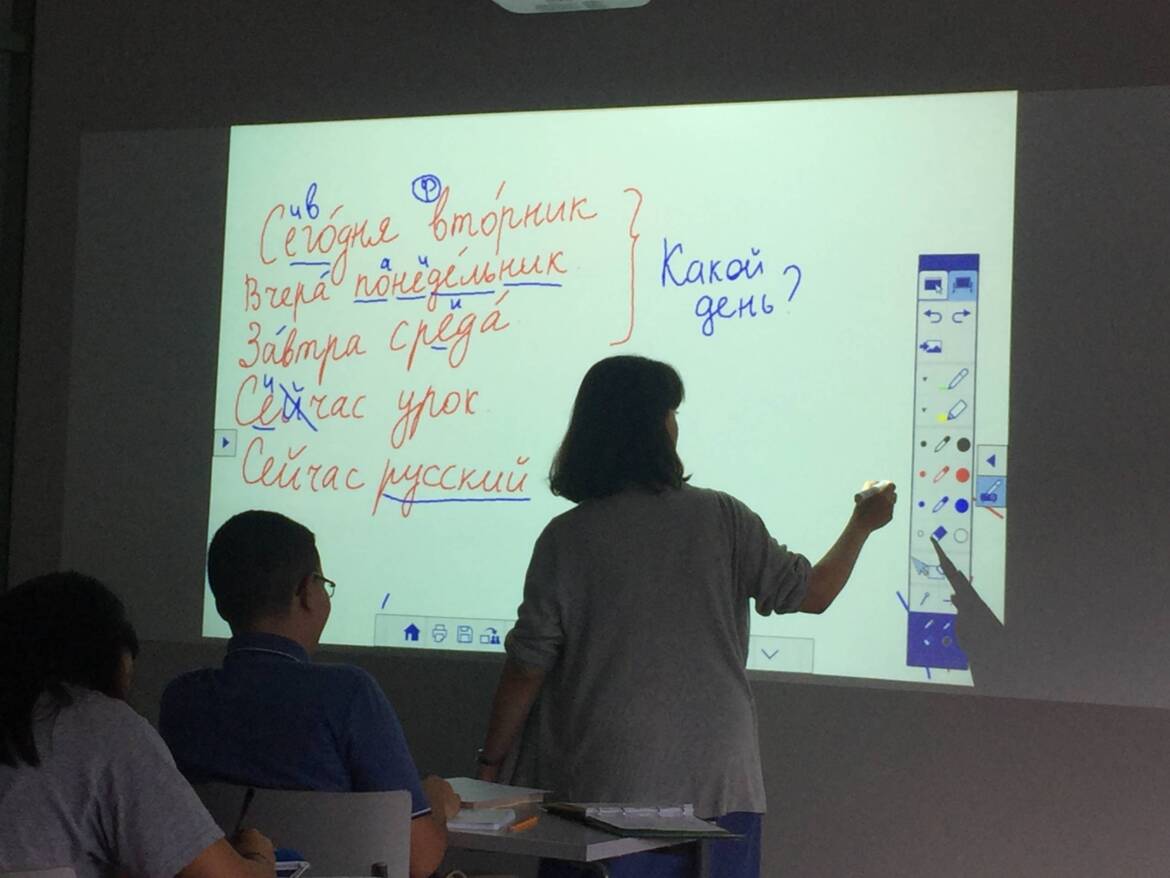 ив ф
Сего́дня вто́рник
а и
Вчера́ понеде́льник
и
За́втра среда́
и
Сейчас урок
Сейчас русский
Какой
день?